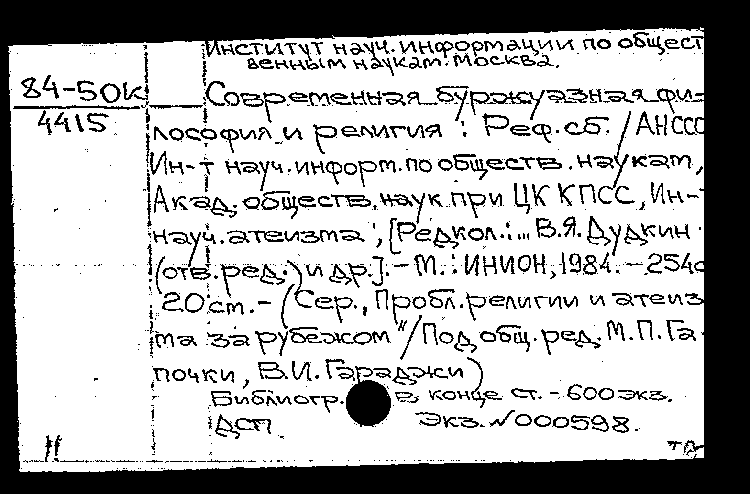 Институт науч. информации по общест
венным наукам. Москва.
84-50к
4415
Современная буржуазная фи-
лософия и религия : Реф. сб. / АНССС
Ин-т науч. информ. по обществ. наукам,
Акад. обществ. наук при ЦК КПСС, Ин-т
науч. атеизма ; [Редкол.: ... В.Я. Дудкин
(отв. ред.) и др.]. - М. : ИНИОН, 1984. - 254с
20 см. - (Сер., Пробл. религии и атеиз
ма за рубежом" / Под общ. ред. М.П. Га-
почки, В.И. Гараджи)
Библиогр. в конце ст. - 600 экз.
ДСП. Экз. N 000598.